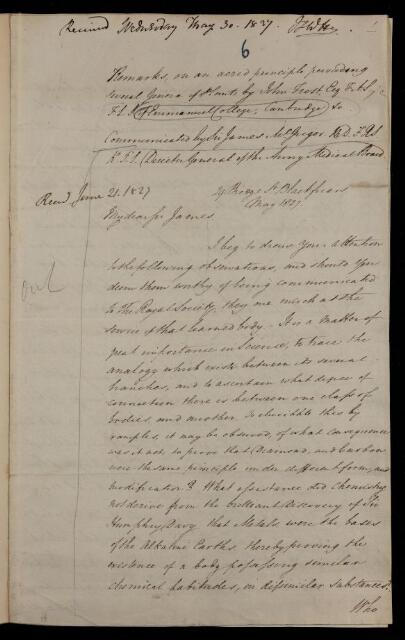 Received Wednesday May 30. 1827.
6
Remarks, on an acrid principle, pervading
several Genera of Plants by John Frost Esq F.A.S.
F.L.S. (of Emmanuel College, Cambridge) &c
Communicated by Sir James McGrigor M.D. F.R.S
& F.L.S. (Director General of the Army Medical Board
Read June 21. 1827
Bridge St. Blackfriars
May 1827
My dear Sir James,
out
I beg to draw your attention
to the following observations, and should you
deem them worthy of being communicated
to The Royal Society, they are much at the
service of that learned body. It is a matter of
great importance in Science, to trace the
analogy which exists between its several
branches, and to ascertain what degree of
connection there is between one class of
bodies, and another. To elucidate this by
examples, it may be observed, of what consequence
was it not to prove that Diamond, and Carbon
were the same principle under different forms, and
modification? What assistance did Chemistry
not derive from the brilliant discovery of Sir
Humphry Davy that Metals were the bases
of the Alkaline Earths, thereby proving the
existence of a body possessing similar
chemical habitudes, in dissimilar substances?
Who